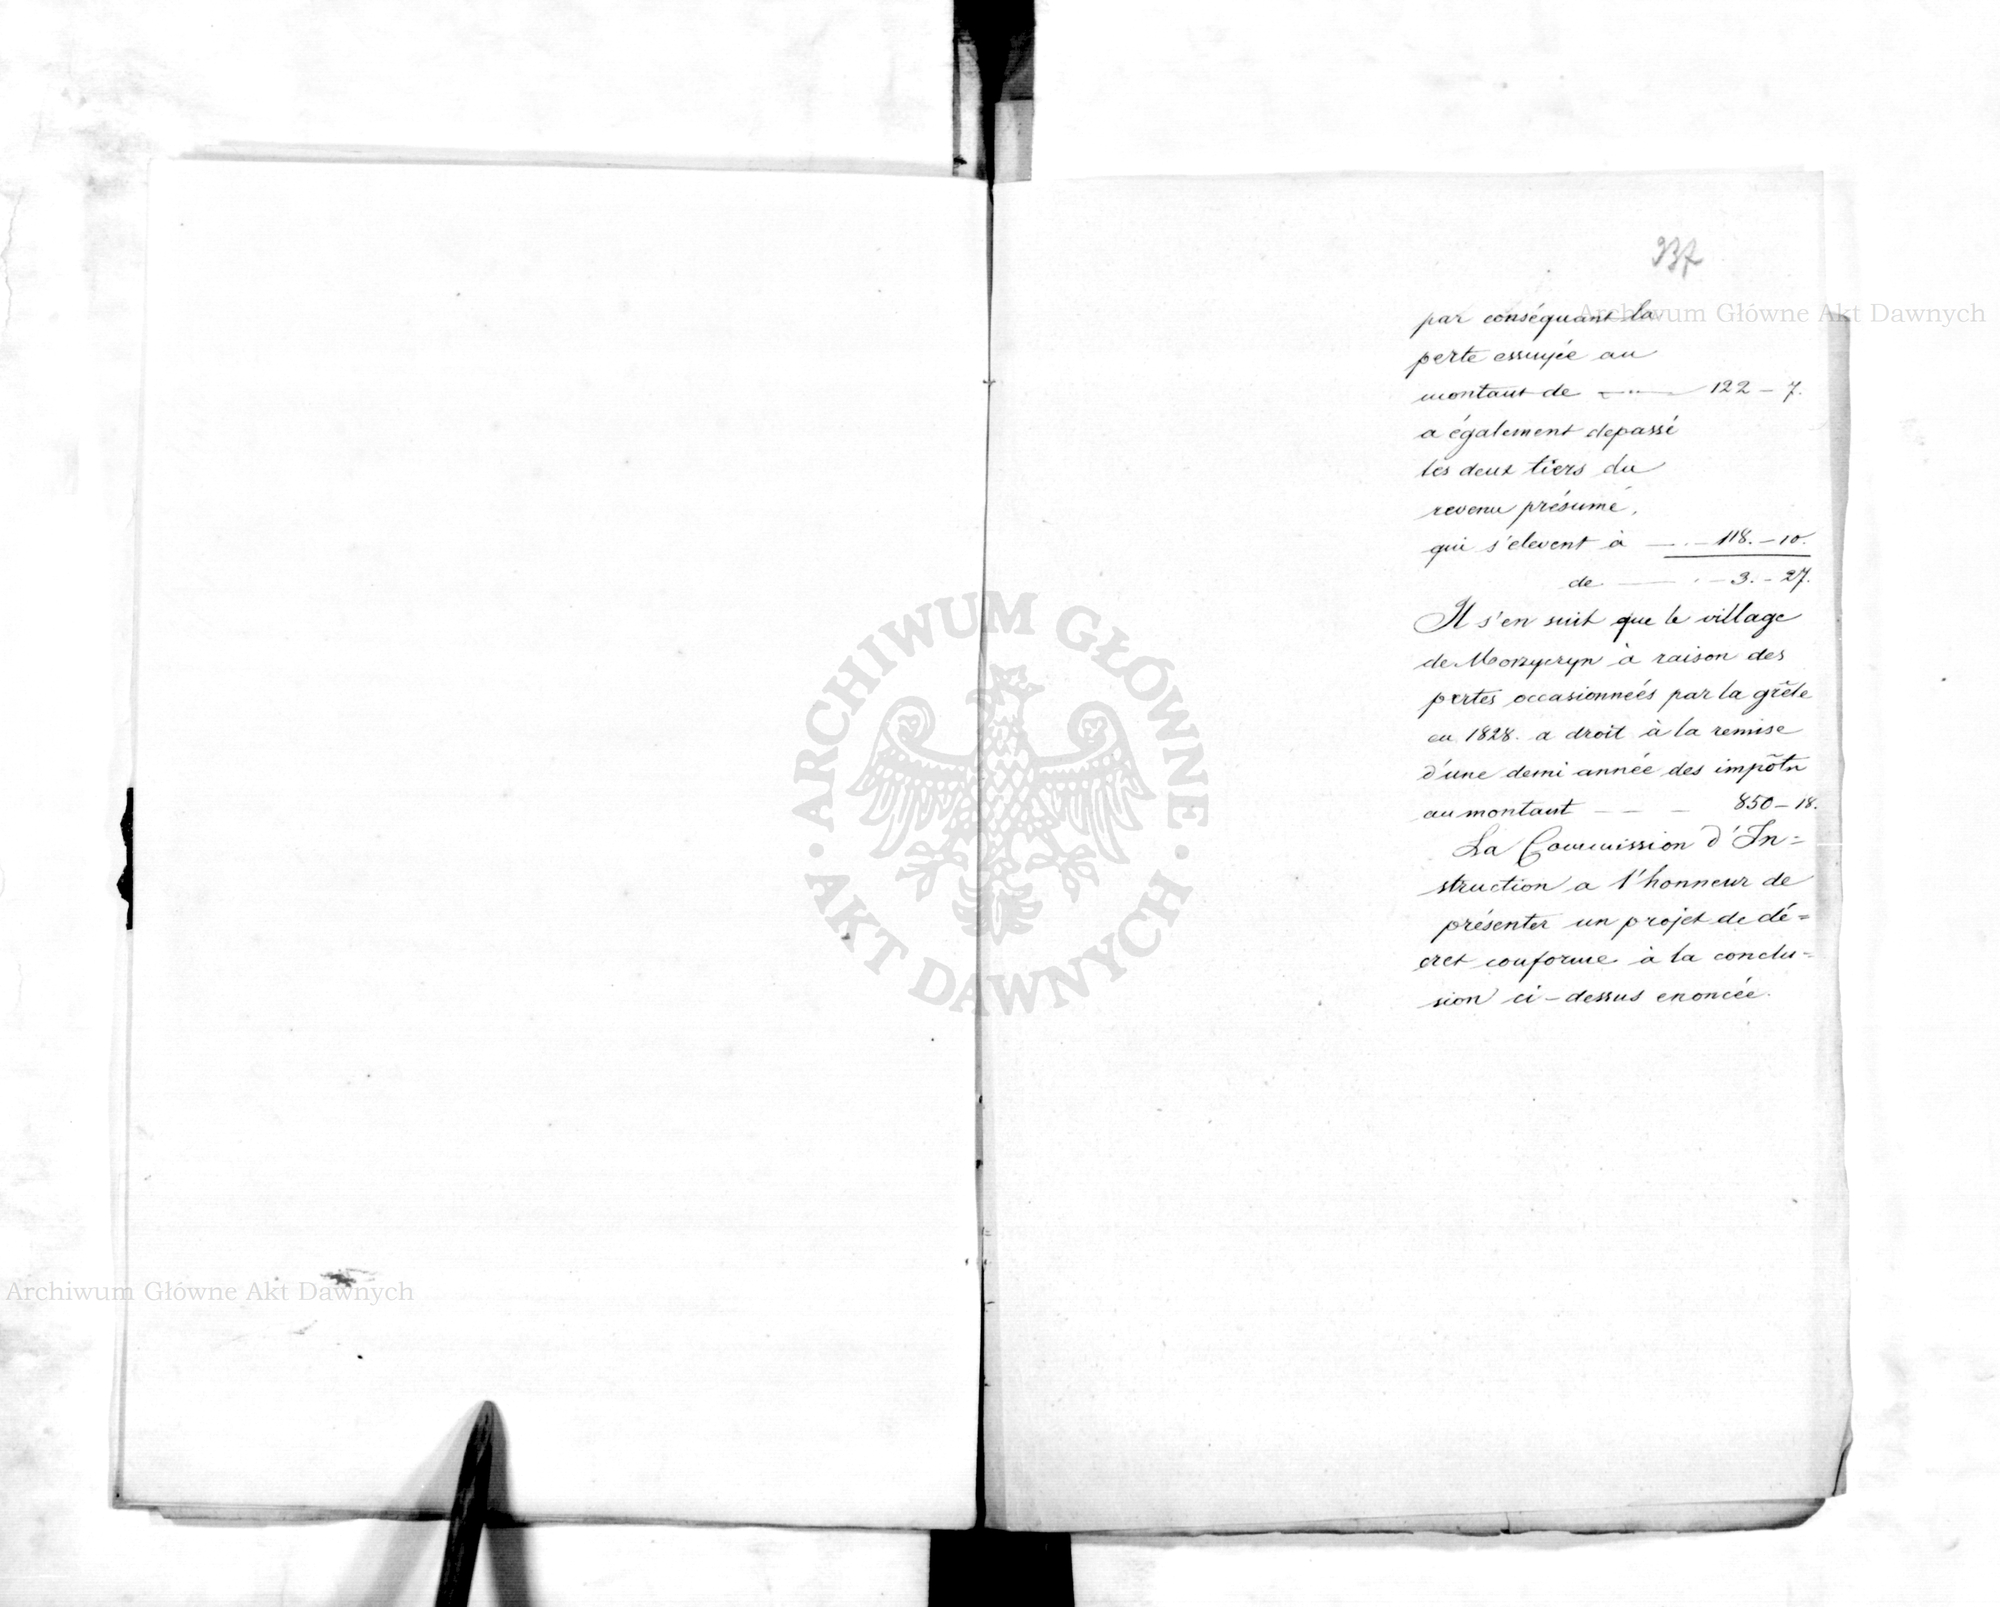 937
par conséquant la
perte essuyée au
montant de — 122 – 7.
a également depassé
les deux tiers du
revenu présumé,
qui s'elevent à — 118. – 10.
de — 3. – 27.
Il s'en suit que le village
de Morzyczyn à raison des
pertes occasionneés par la grêle
en 1828. a droit à la remise
d'une demi année des impôts
au montant — — — 850 – 18.
La Commission d'In=
struction a l'honneur de
présenter un projet de dé=
cret conforme à la conclu=
sion ci-dessus enoncée.
Archiwum Główne Akt Dawnych
ARCHIWUM GŁÓWNE
AKT DAWNYCH
Archiwum Główne Akt Dawnych